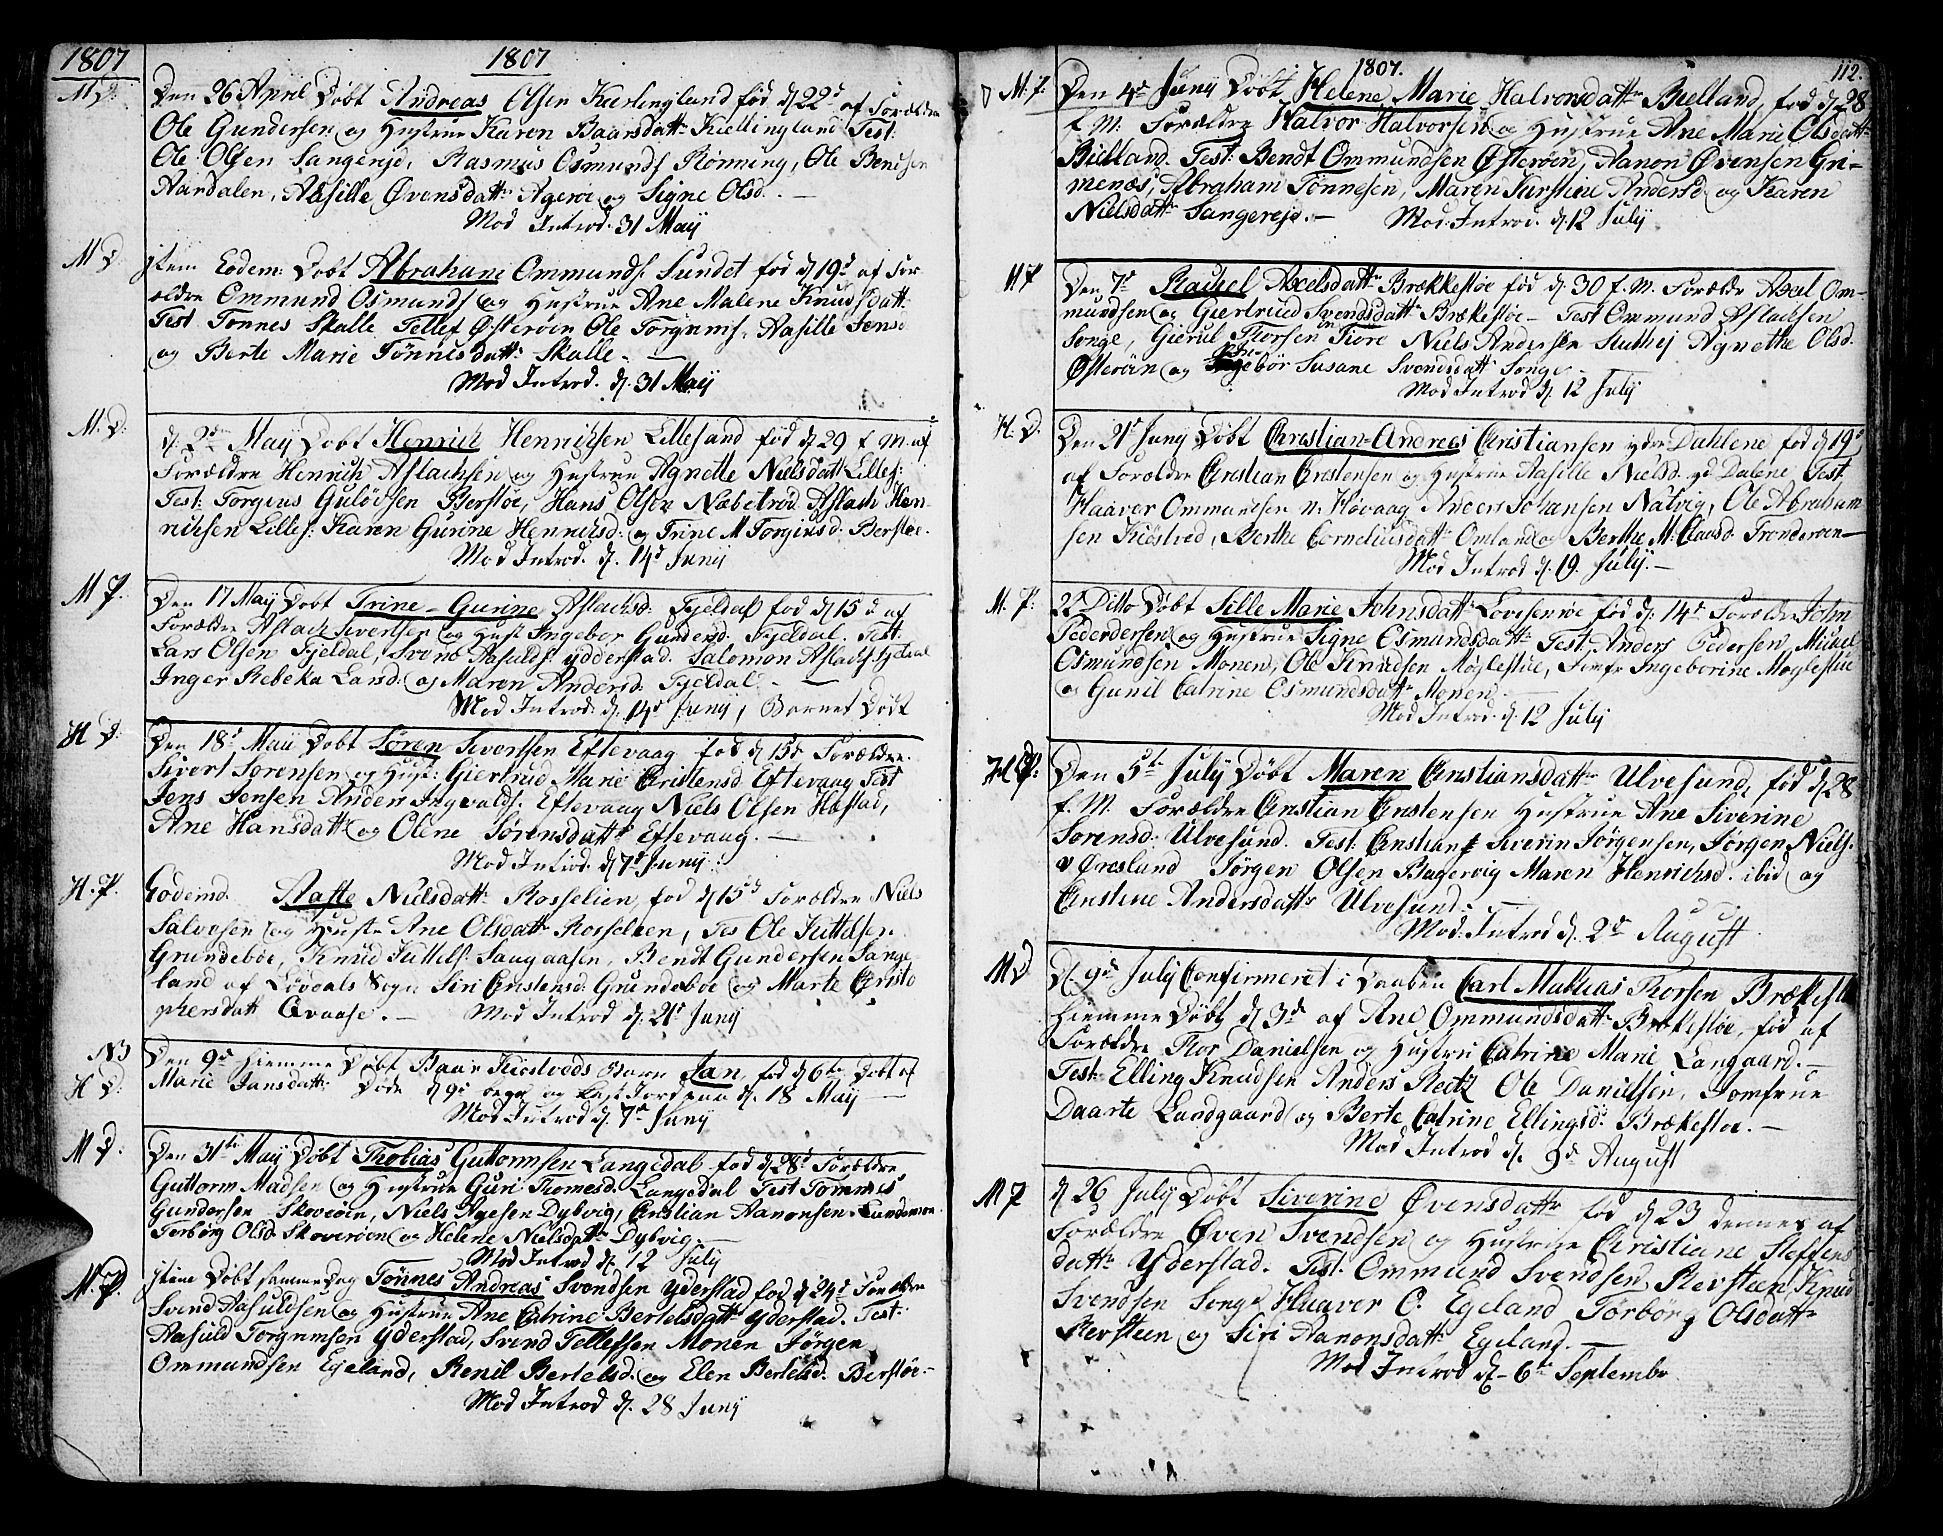 1807
1807
M D:
Den 26 April Døbt Andreas Olsen Kierlingland fød d. 22d af Forældre
Ole Gundersen og Hustrue Karen Baarsdattr Kiellingland Test:
Ole Olsen Sangereje, Rasmus Osmunds Rønning, Ole Bentsen
Aardalen, Aasille Øvensdattr Agerøe og Signe Olsd. —
Mod Introd. 31 Maij
M D:
jtem Eodem: Døbt Abraham Ommunds: Sundet fød d. 19d af For-
ældre Ommund Osmunds og Hustrue Ane Malene Knudsdattr
Test Tønnes Skalle Tellef Østerøen Ole Torgrims: Aasille Jensd
og Berte Marie Tønnisdattr Skalle. —
Mod Introd. d. 31 Maij
M. D:
d. 3die Maij Døbt Henrich Henrichsen Lillesand fød d. 29 f. M. af
Forældre Henrich Aslachsen og Hustrue Agnette Nielsdatt Lilles:
Test: Torgius Guløvsen Berstøe, Hans Olsen Næbetrod Aslach Hen-
richsen Lilles: Karen Gurine Henrichsd: og Trine M Torgiusd: Berstøe.
Mod Introd. d. 14d Junij
M P.
Den 17 Maij Døbt Trine-Gurine Aslachsd: Fjeldal fød d 15d af
Forældre Aslach Sivertsen og Hust Ingebor Gundersd. Fjeldal. Test:
Lars Olsen Fjeldal, Svend Aasulds: ydderstad. Salomon Aslachs Fjeldal
Inger Rebeka Lansd: og Maren Andersd Fjeldal. —
Mod Introd: d. 14d Junij, Barnet Dødt
H D:
Den 18d Maij Døbt Søren Sivertsen Eftevaag fød d 15d Forældre
Sivert Sørensen og Hust: Giertrud Marie Cristensd Eftevaag Test
Jens Jensen Anders Ingvalds: Eftevaag Niels Olsen Hæstad,
Ane Hansdatt og Olene Sørensdattr Eftevaag. —
Mod Introd: d 7d Junij
H. P.
Eodemd. Aaste Nielsdattr Rosselien, fød d 15d Forældre Niels
Salvesen og Hustr Ane Olsdattr Rosselien, Tes Ole Juttelsen
Grundeböe, Knud Juttels: Saagaasen, Bendt Gundersen Lange-
land af Løvdals Sogn Siri Cristensd: Grundeböe og Marte Cristo
phersdatt Qvaase. — Mod Introd d. 21d Junij
N3
H D:
Den 9d hiemme Døbt Baar Kiøstveds Barn Jan, fød d 6te Døbt af
Marie Jansdattr Døde d 9d begr og Kast Jord paa d. 18 May —
Mod Introd d. 7d Junij
M D.
Den 31te Maij Døbt Thobias Guttormsen Langedal fød d 28d Forældre
Guttorm Madsen og Hustrue Guri Thomesd. Langedal Test Tommes
Gundersen Skoverøen, Niels Agesen Dybvig, Cristian Aanonsen
Torbørg Olsd Skoverøen og Helene Nielsdattr Dybvig. —
Mod Introd d. 12 July
M. P.
jtem Døbt samme Dag Tønnes Andreas Svendsen Yderstad fød d 24d Forældre
Svend Aasuldsen og Hustrue Ane Catrine Bertelsdattr Yderstad. Test:
Aasuld Torgrimsen Yderstad, Svend Tellefsen Monen Jörgen
Ommundsen Egeland, Renil Bertelsd. og Elen Bertelsd. Berstøe-
Mod Introd d. 28 Junij
1807.
112.
M. P.
Den 4de Junij Døbt Helene Marie Halvorsdattr Bielland, fød d. 28
f. M. Forældre Halvor Halvorsen og Hustrue Ane Marie Olsdattr
Bielland. Test: Bendt Ommundsen Østerøen, Aanon Øvensen Gri-
menæs, Abraham Tønnesen, Maren Kirstine Andersd og Karen
Nielsdattr Sangereje. — Mod: Introd. d. 12 July
M P
Den 7d Rachel Axelsdattr Brækkestøe fød d. 30 f. M. Forældr Axel Om-
mundsen og Giertrud Svendsdattr Brækestøe — Test Ommund Aslachsen
Songe, Gierul Thorsen Fiøre Niels Andersen Agnethe Olsd.
Østerøen og Ingebör Susane Svendsdatt Songe —
Mod Introd d. 12 July
H. D.
Den 21d Junij Døbt Christian-Andreas Christiansen ydre Dahlene fød d 19d
af Forældre Cristian Cristensen og Hustrue Aasille Nielsd. yd Dalene Test
Haaver Ommundsen n: Høvaag Anders Johansen Natvig, Ole Abraham
sen Kiöstved, Berthe Corneliusdatt Omland og Berthe M: Claasd Tronderøen —
Mod Introd d. 19. July. —
M. P:
22 Ditto Døbt Sille Marie Johnsdattr fød d. 14d Forældre John
Pedersen og Hustrue Signe Osmundsdattr Test Anders Pedersen, Mikel
Osmundsen Monen, Ole Knudsen Møglestue, Jomfr Ingeborine Moglestue
og Gunil Catrine Osmundsdattr Monen. —
Mod Introd. d. 12 July
H P:
Den 5te July Døbt Maren Cristiansdattr Ulvesund, fød d. 28
f. M. Forældre Cristian Cristensen Hustrue Ane Siverine
Sørensd: Ulvesund. Test: Cristian & Siverin Jørgensen, Jørgen Niels.
v Øresland Jörgen Olsen Bagervig Maren Henrichsd: ibid og
Cristine Andersdattr Ulvesund. —
Mod: Introd d. 2d August
M D
D. 9d July Confirmeret i Daaben Carl Mathias Thorsen Brækestøe
hiemme Døbt d 3d af Ane Ommundsdattr Brækestøe, fød af
Forældre Thor Danielsen og Hustru Catrine Marie Langaard. —
Test: Elling Knudsen Anders Reetz Ole Danielsen, Jomfrue
Daarte Landgaard og Berte Catrine Ellingsd: Brækestøe. —
Mod Introd d. 9d August
M P
d 26 July Døbt Siverine Øvensdattr fød d 23 dennes af
Forældre Øven Svendsen og Hustrue Christiane Steffens
dattr Yderstad. Test: Ommund Svendsen Revsteen, Knud
Svendsen Songe Haaver O. Egeland Torborg Olsdattr
Revsteen og Siri Aanonsdattr Egeland. —
Mod Introd d. 6te Septembr